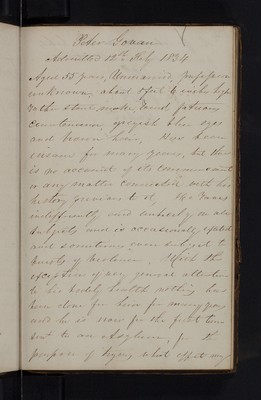 Peter Gowan
Admitted 12th July 1834
Aged 35 years, Unmarried, profession
unknown, about 5 feet 6 inches high
rather stout make, round,
countenance, greyish blue eyes
and brown hair. Has been
insane for many years, but there
is no account of its commencement
or any matter connected with his
history previous to it. He
indifferently and
subjects and is occasionally
and sometimes even subject to
bursts of. With the
exception of very general attention
to his bodily health nothing has
been done for him for many years
and he is now for the first time
sent to an Asylum, for the
purpose of trying what effect may